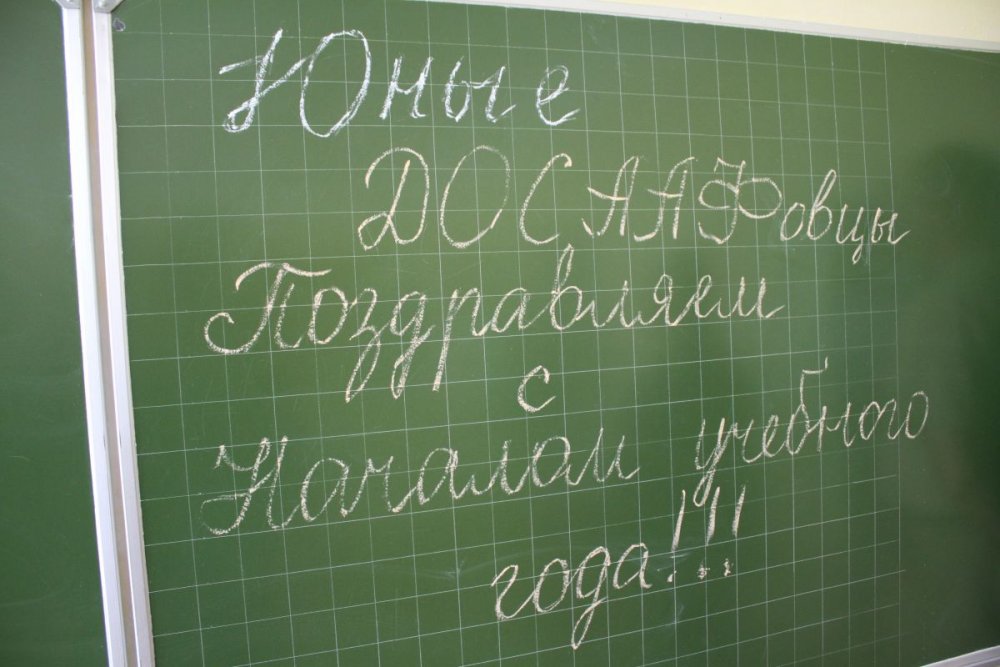 Юные
ДОСААФовцы
Поздравляем
с
Началом учебного
года!!!